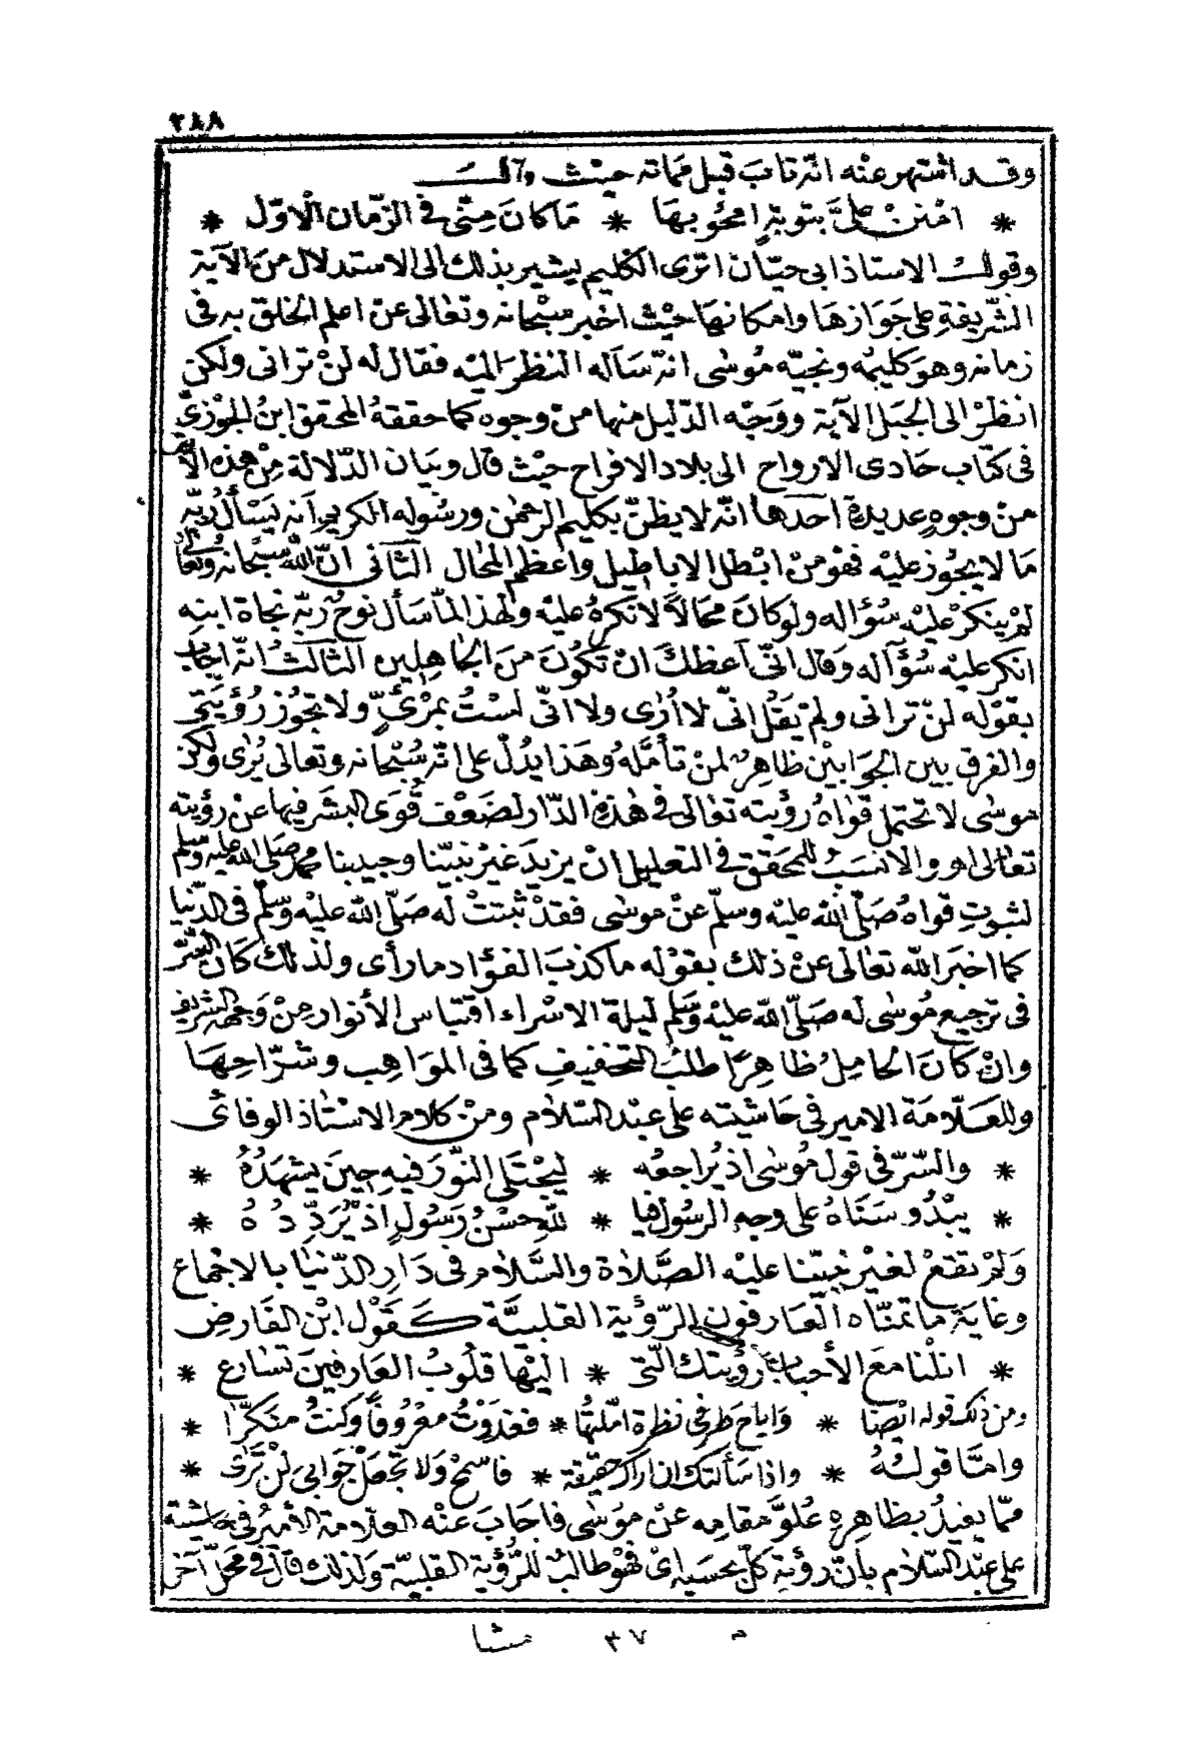 ٢٨٨
وقد اشتهر عنه انّه تابَ قبل مماته حيث قال
* امنن علىَّ بتوبةٍ امحُو بهَا * مَا كانَ مِنّى فى الزّمان الْاوّل *
وقول الاستاذ ابى حيّان اترى الكليم يشير بذلك الى الاستدلال منَ الآية
الشّريفةِ على جَوَازهَا وامكانهَا حيْث اخبر سبْحانه وتعَالى عنْ اعلم الخلق به فى
زمانه وهوَ كليمُه ونجيّه مُوسٰى انّه سَأله النظرَ اليْه فقال له لنْ ترانى ولكن
انظرْ الى الجَبَل الآية ووَجْه الدّليل منها منْ وجوه كما حققهُ المحقق ابنُ الجوْزىّ
فى كتّاب حَادى الارواح الى بلاد الافراح حيْث قال وبيَان الدّلالة مِنْ هذه الآية
منْ وجوهٍ عديدة احَدها انّه لا يظنّ بكليم الرحمٰن ورسُوله الكريم اَنه يَسْأل ربّه
مَا لا يجُوز عليْه فهوَ منْ ابْطل الاباطيل واعظم المحَال الثانى انّ اللّه سبحانه وتعالى
لمْ ينكرْ عليْه سُؤاله ولوْ كانَ محَالاً لانكرَهُ عليْه ولهذا لمّا سَأل نوحٌ ربّه نجاة ابنه
انكر عليْه سُؤآله وَقال انّى اَعظكَ انْ تكُونَ منَ الجَاهِلِين الثالثُ انّه اجابَ
بقوْله لنْ ترانى ولمْ يَقلْ انّى لا اُرٰى ولا انّى لسْتُ بمرْئىٍّ ولا تجُوز رُؤْيَتى
والفرق بين الجوَابيْن ظاهِرٌ لمنْ تأمّلهُ وهَذا يدُلّ على انّه سُبْحانه وتعالى يُرٰى ولكن
موسٰى لا تحْتمل قوَاهُ رؤيته تعَالى فى هٰذه الدّار لضَعْف قُوَى البشَر فيها عن رؤيته
تعَالى اهـ والانسَبُ للمحَقق فى التعليل انْ يزيدَ غيْرَ نبيّنا وحبيبنا محمد صلى الله عليه وسلم
لثبوتِ قواهُ صَلّى اللّه عليْه وسلّم عنْ موسٰى فقدْ ثبتتْ له صَلّى اللّه عليْه وَسلّم فى الدّنيا
كما اخبرَ اللّه تعَالى عنْ ذلك بقوْله ما كذبَ الفؤاد ما رأى ولذلك كانَ السّرّ
فى ترجيع مُوسٰى له صَلّى اللّه عليْه وَسَلم ليْلة الاسْراء اقتبَاس الأنوار منْ وَجْهه الشريف
وانْ كانَ الحامِلُ ظاهِرًا طلبَ التخفيفِ كما فى الموَاهِب وشُرّاحِهَا
وللعَلّامَة الامير فى حَاشيته على عبْد السّلام ومنْ كلام الاسْتاذ الوفائى
* والسّرّ فى قول مُوسٰى اذ يُراجعُه * ليَجْتلى النّورَ فيهِ حِينَ يشهَدُهُ *
* يبْدُو سَنَاهُ على وجهِ الرسُول فيا * للهِ حسْنُ رَسُولٍ اذ يُرَدِّدُهُ *
وَلمْ تقعْ لغيْر نبيّنا عليْه الصَّلاة والسَّلام فى دَار الدّنيَا بالاجْماع
وغايَة مَا تمَنّاه العَارفون الرّؤية القلبيَّة كقَوْل ابْن الفَارض
* انلْنا معَ الأحبابِ رؤْيتك الّتى * اليْها قلُوبُ العَارفينَ تسَارع *
ومن ذلك قوله ايْضا * وَاباحَ طرفى نظرة امّلتُها * فغدَوْتُ معْرُوفاً وكنتُ منَكرًا *
وامّا قولهُ * واذا سَألتك ان اراك حقيقة * فاسْمحْ وَلا تجْعَلْ جَوابى لنْ ترٰى *
ممّا يفيدُ بظاهِرهِ عُلوَّ مَقامِه عنْ موسٰى فاجَابَ عنْه العلّامة الأميرُ فى حاشية
على عبْد السّلام بأنّ رؤية كلّ بحسَبه اىْ فهوَ طالبٌ للرُّؤية القلبيّة وَلذلك قال فى محَلّ آخر
م ٣٧ مشا